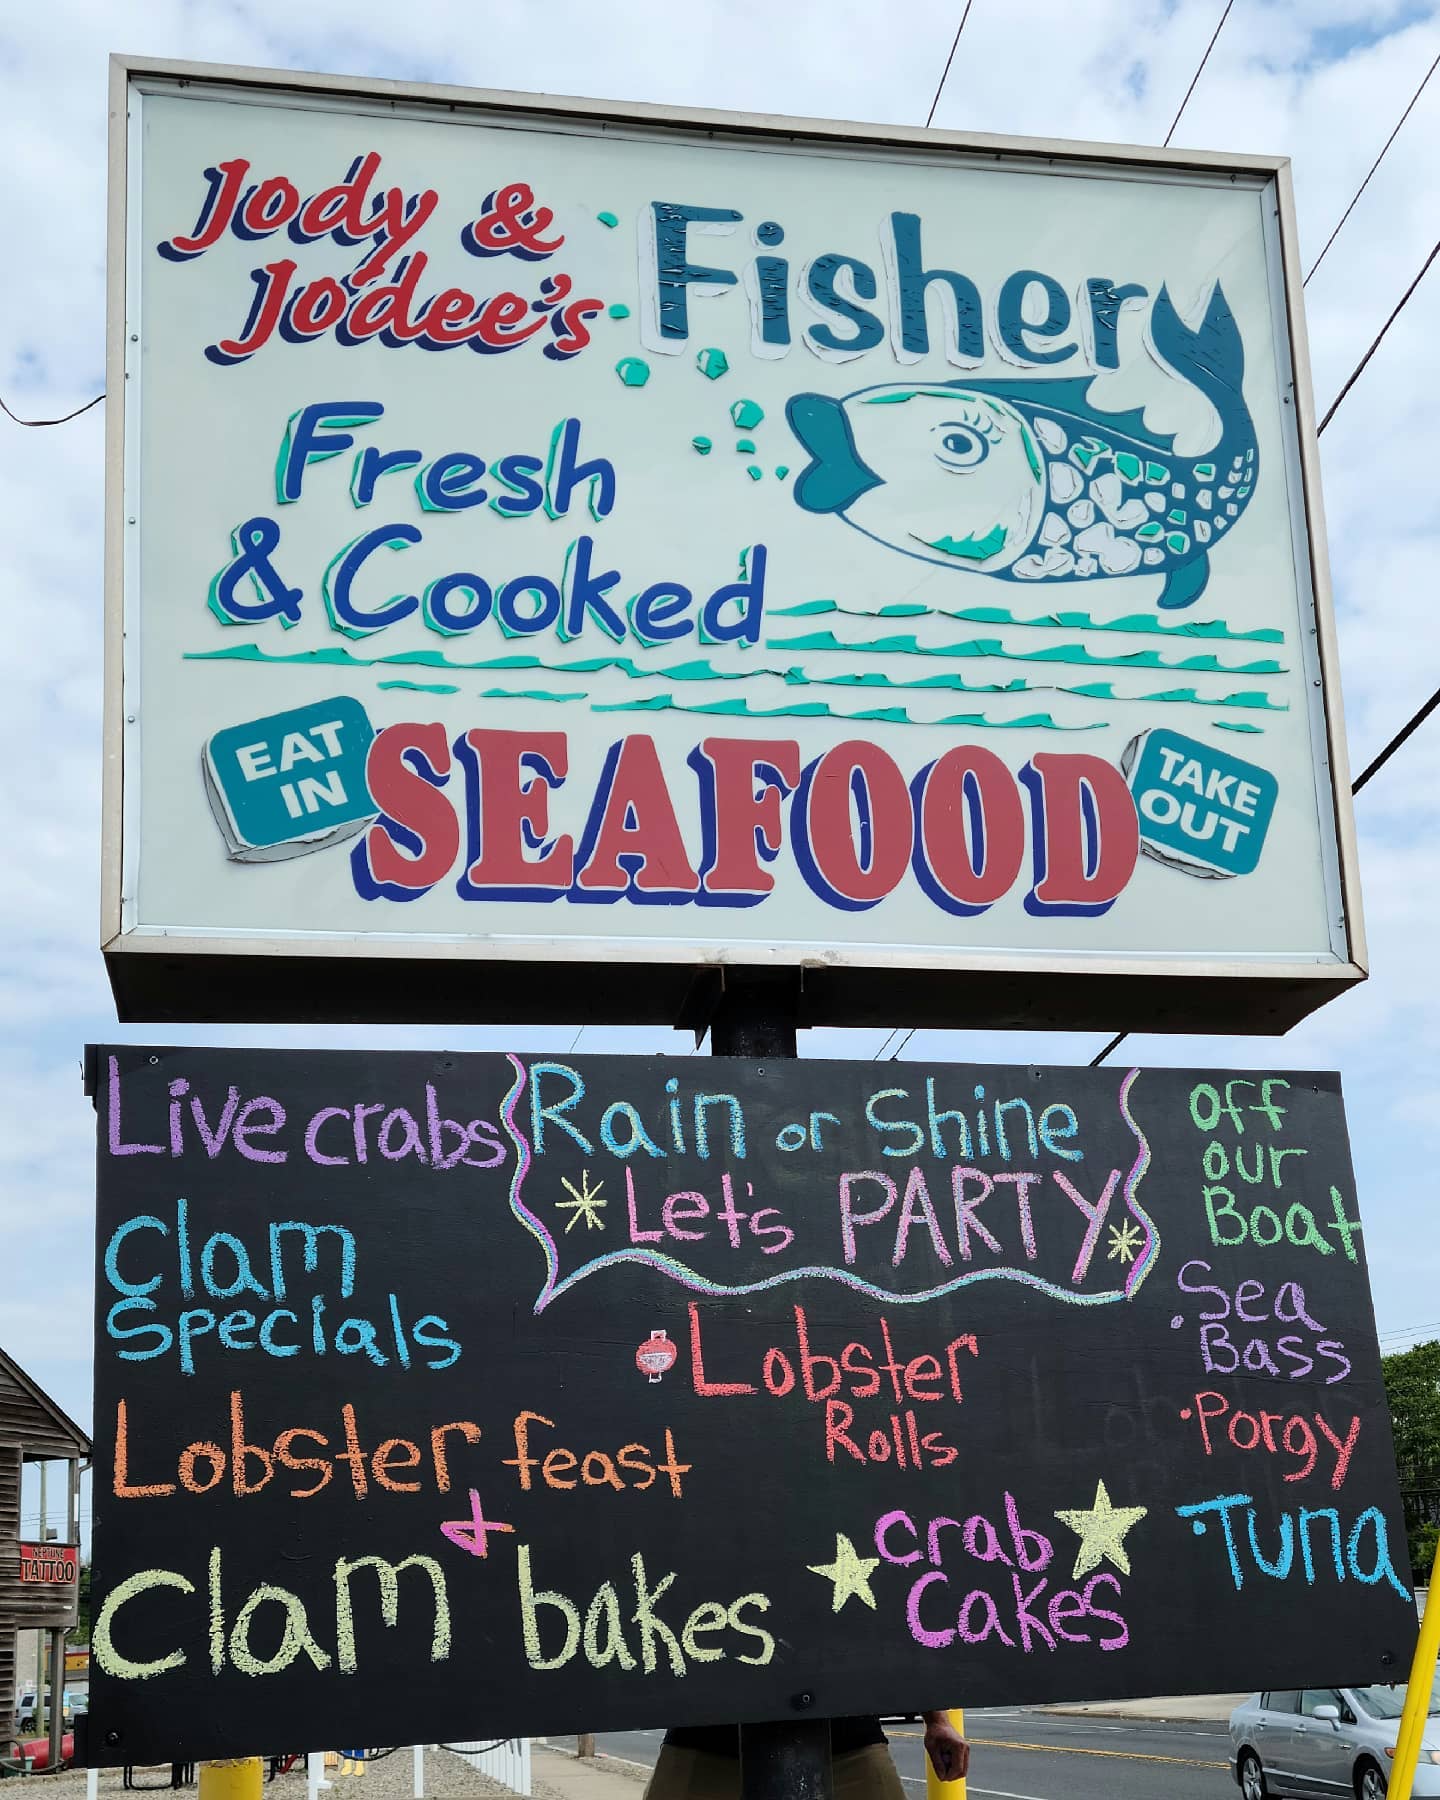 Jody &
Jodee's
Fishery
Fresh
& Cooked
EAT
IN
SEAFOOD
TAKE
OUT
Live crabs
Rain or Shine
Let's PARTY
Clam
Specials
Lobster feast
+
Clam bakes
Lobster
Rolls
Crab
Cakes
Off
our
Boat
Sea
Bass
Porgy
Tuna
NEPTUNE
TATTOO